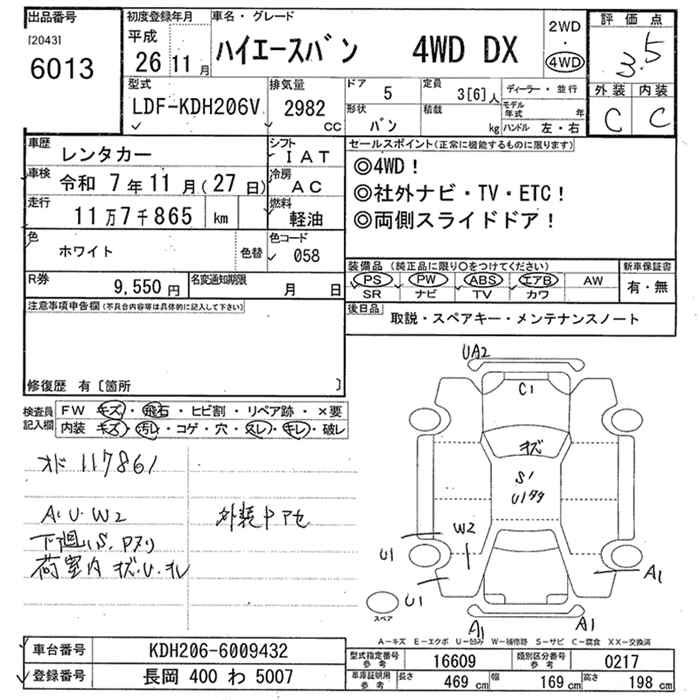 出品番号
[2043]
6013
初度登録年月
平成
26 11 月
車名・グレード
ハイエースバン 4WD DX
2WD
・
4WD
評価点
3.5
外装 内装
C C
型式
LDF-KDH206V
排気量
2982
CC
ドア
5
定員
3[6]人
形状
バン
積載
kg
ディーラー・並行
モデル年式 年
ハンドル 左・右
車歴
レンタカー
シフト
IAT
車検
令和 7年 11月(27日)
冷房
AC
走行
11万7千865 km
燃料
軽油
色
ホワイト
色替
色コード
058
R券
9,550円
名変通知期限
月 日
セールスポイント(正常に機能するものに限ります)
◎4WD!
◎社外ナビ・TV・ETC!
◎両側スライドドア!
装備品(純正品に限り○をつけてください)
PS PW ABS エアB AW
SR ナビ TV カワ
新車保証書
有・無
後日品
取説・スペアキー・メンテナンスノート
注意事項申告欄(不具合内容等は具体的に記入して下さい)
修復歴 有〔箇所 〕
検査員記入欄
FW キズ・飛石・ヒビ割・リペア跡・×要
内装 キズ・汚レ・コゲ・穴・スレ・キレ・破レ
オド 117861
A・U・W2
下廻りS, Pヌリ
荷室内 キズ・U・オレ
外装中アセ
UA2
C1
キズ
S1
U1タタ
W2
U1
U1
A1
A1
A1
スペア
A-キズ E-エクボ U-凹み W-補修跡 S-サビ C-腐食 XX-交換済
車台番号
KDH206-6009432
登録番号
長岡 400 わ 5007
型式指定番号
参考
16609
類別区分番号
参考
0217
車庫証明用
参考
長さ 469 cm
幅 169 cm
高さ 198 cm